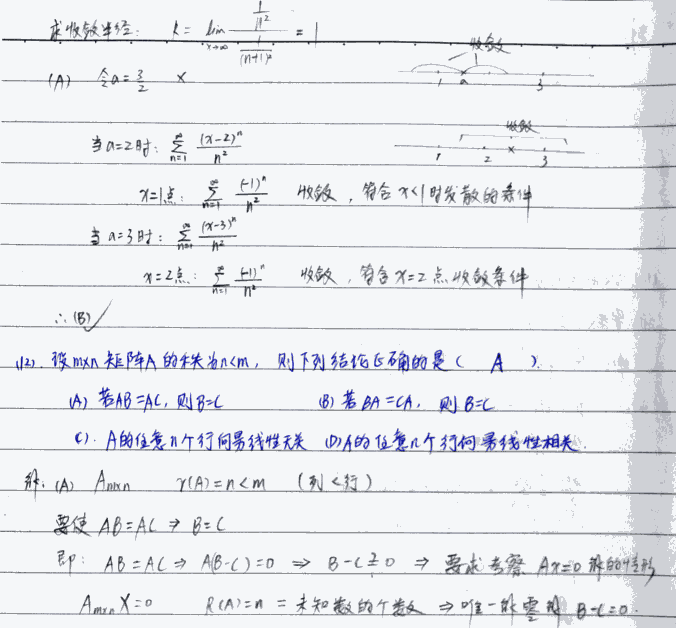 求收敛半径: R = lim x→∞ (1/n²)/(1/(n+1)²) = 1
收敛
(A) 令a=3/2 ×
1 a 3
收敛
当a=2时: ∑_{n=1}^{∞} (x-2)^n/n²
1 2 × 3
x=1点: ∑_{n=1}^{∞} (-1)^n/n² 收敛, 符合x<1时发散的条件
当a=3时: ∑_{n=1}^{∞} (x-3)^n/n²
x=2点: ∑_{n=1}^{∞} (-1)^n/n² 收敛, 符合x=2点收敛条件
∴ (B) ✓
(12). 设m×n矩阵A的秩为n<m, 则下列结论正确的是( A ).
(A) 若AB=AC, 则B=C (B) 若BA=CA, 则B=C
(C). A的任意n个行向量线性无关 (D) A的任意n个行向量线性相关.
解: (A) A_{m×n} r(A)=n<m (列<行)
要使 AB=AC ⇒ B=C
即: AB=AC ⇒ A(B-C)=0 ⇒ B-C≟0 ⇒ 要求考察 Ax=0 解的情形
A_{m×n}X=0 R(A)=n = 未知数的个数 ⇒ 唯一解零 B-C=0.